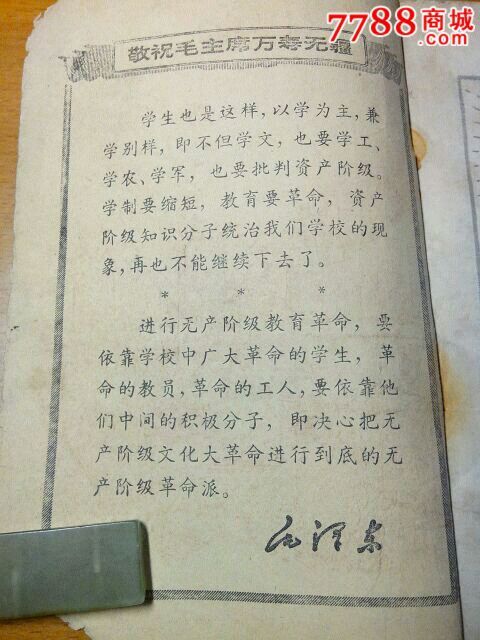 7788商城
.com
敬祝毛主席万寿无疆
学生也是这样，以学为主，兼
学别样，即不但学文，也要学工、
学农、学军，也要批判资产阶级。
学制要缩短，教育要革命，资产
阶级知识分子统治我们学校的现
象，再也不能继续下去了。
* * *
进行无产阶级教育革命，要
依靠学校中广大革命的学生，革
命的教员，革命的工人，要依靠他
们中间的积极分子，即决心把无
产阶级文化大革命进行到底的无
产阶级革命派。
毛泽东